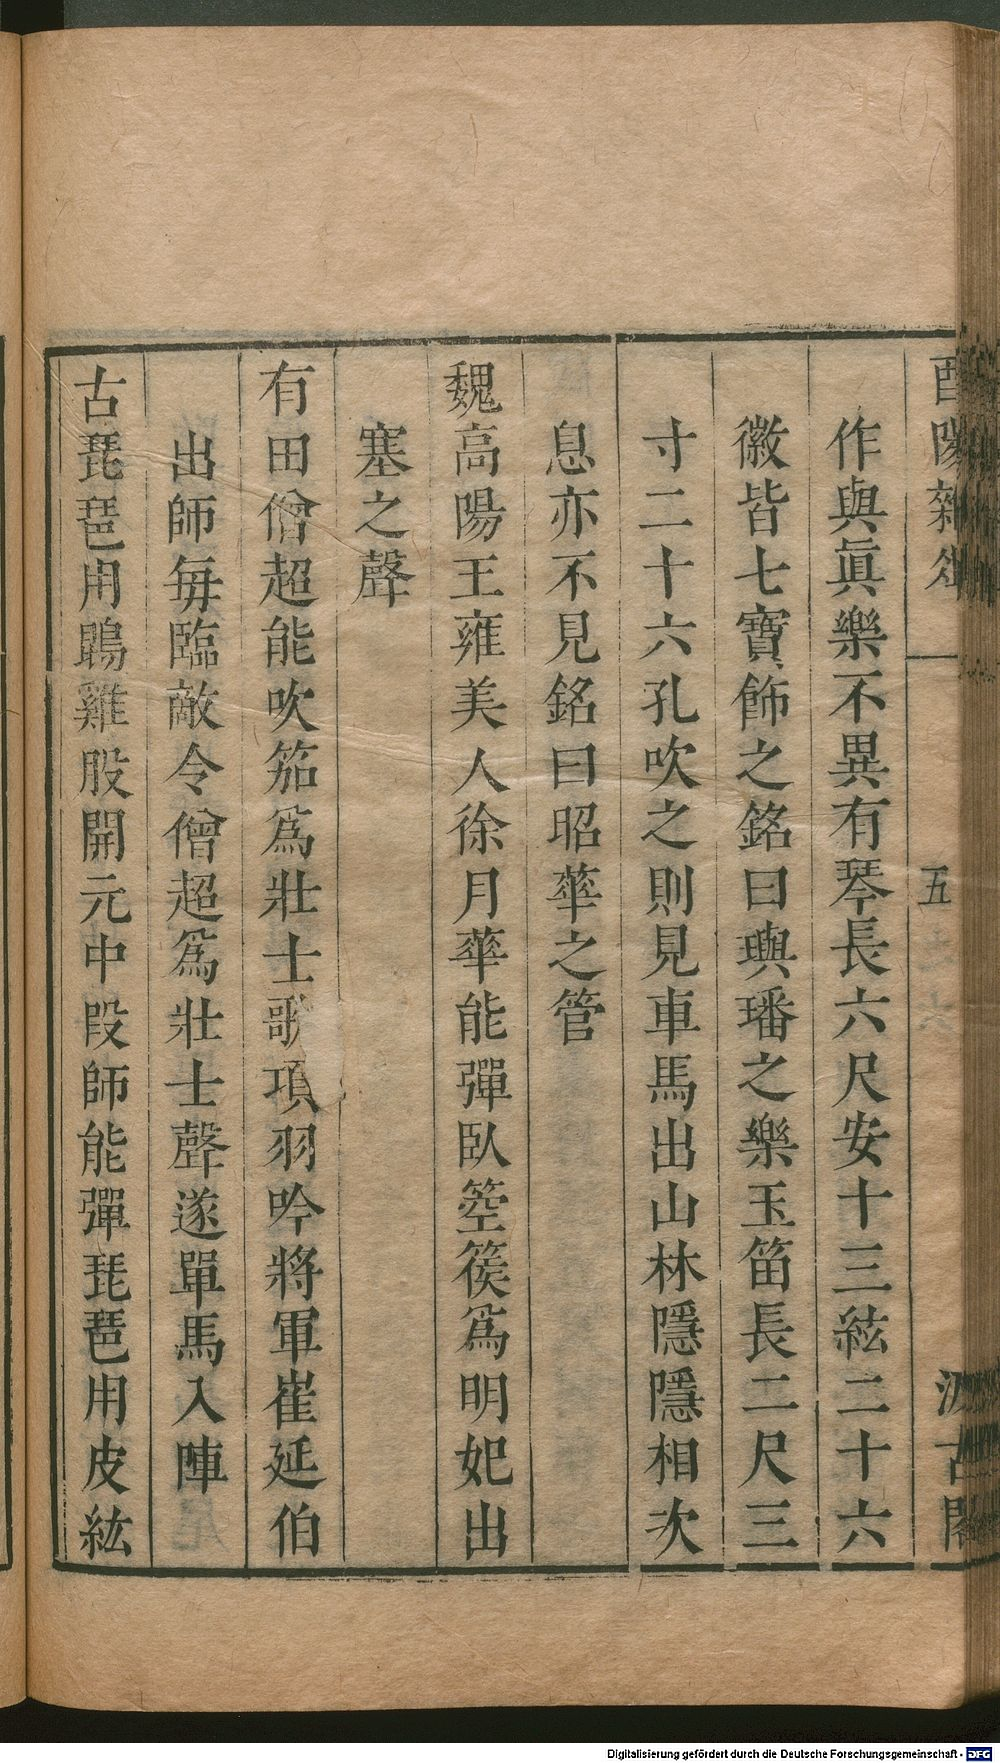 酉陽雜俎
五
汲古閣
作與眞樂不異有琴長六尺安十三絃二十六
徽皆七寶飾之銘曰璵璠之樂玉笛長二尺三
寸二十六孔吹之則見車馬出山林隱隱相次
息亦不見銘曰昭華之管
魏高陽王雍美人徐月華能彈臥箜篌爲明妃出
塞之聲
有田僧超能吹笳爲壯士歌項羽吟將軍崔延伯
出師每臨敵令僧超爲壯士聲遂單馬入陣
古琵琶用鵾雞股開元中段師能彈琵琶用皮絃
Digitalisierung gefördert durch die Deutsche Forschungsgemeinschaft - DFG